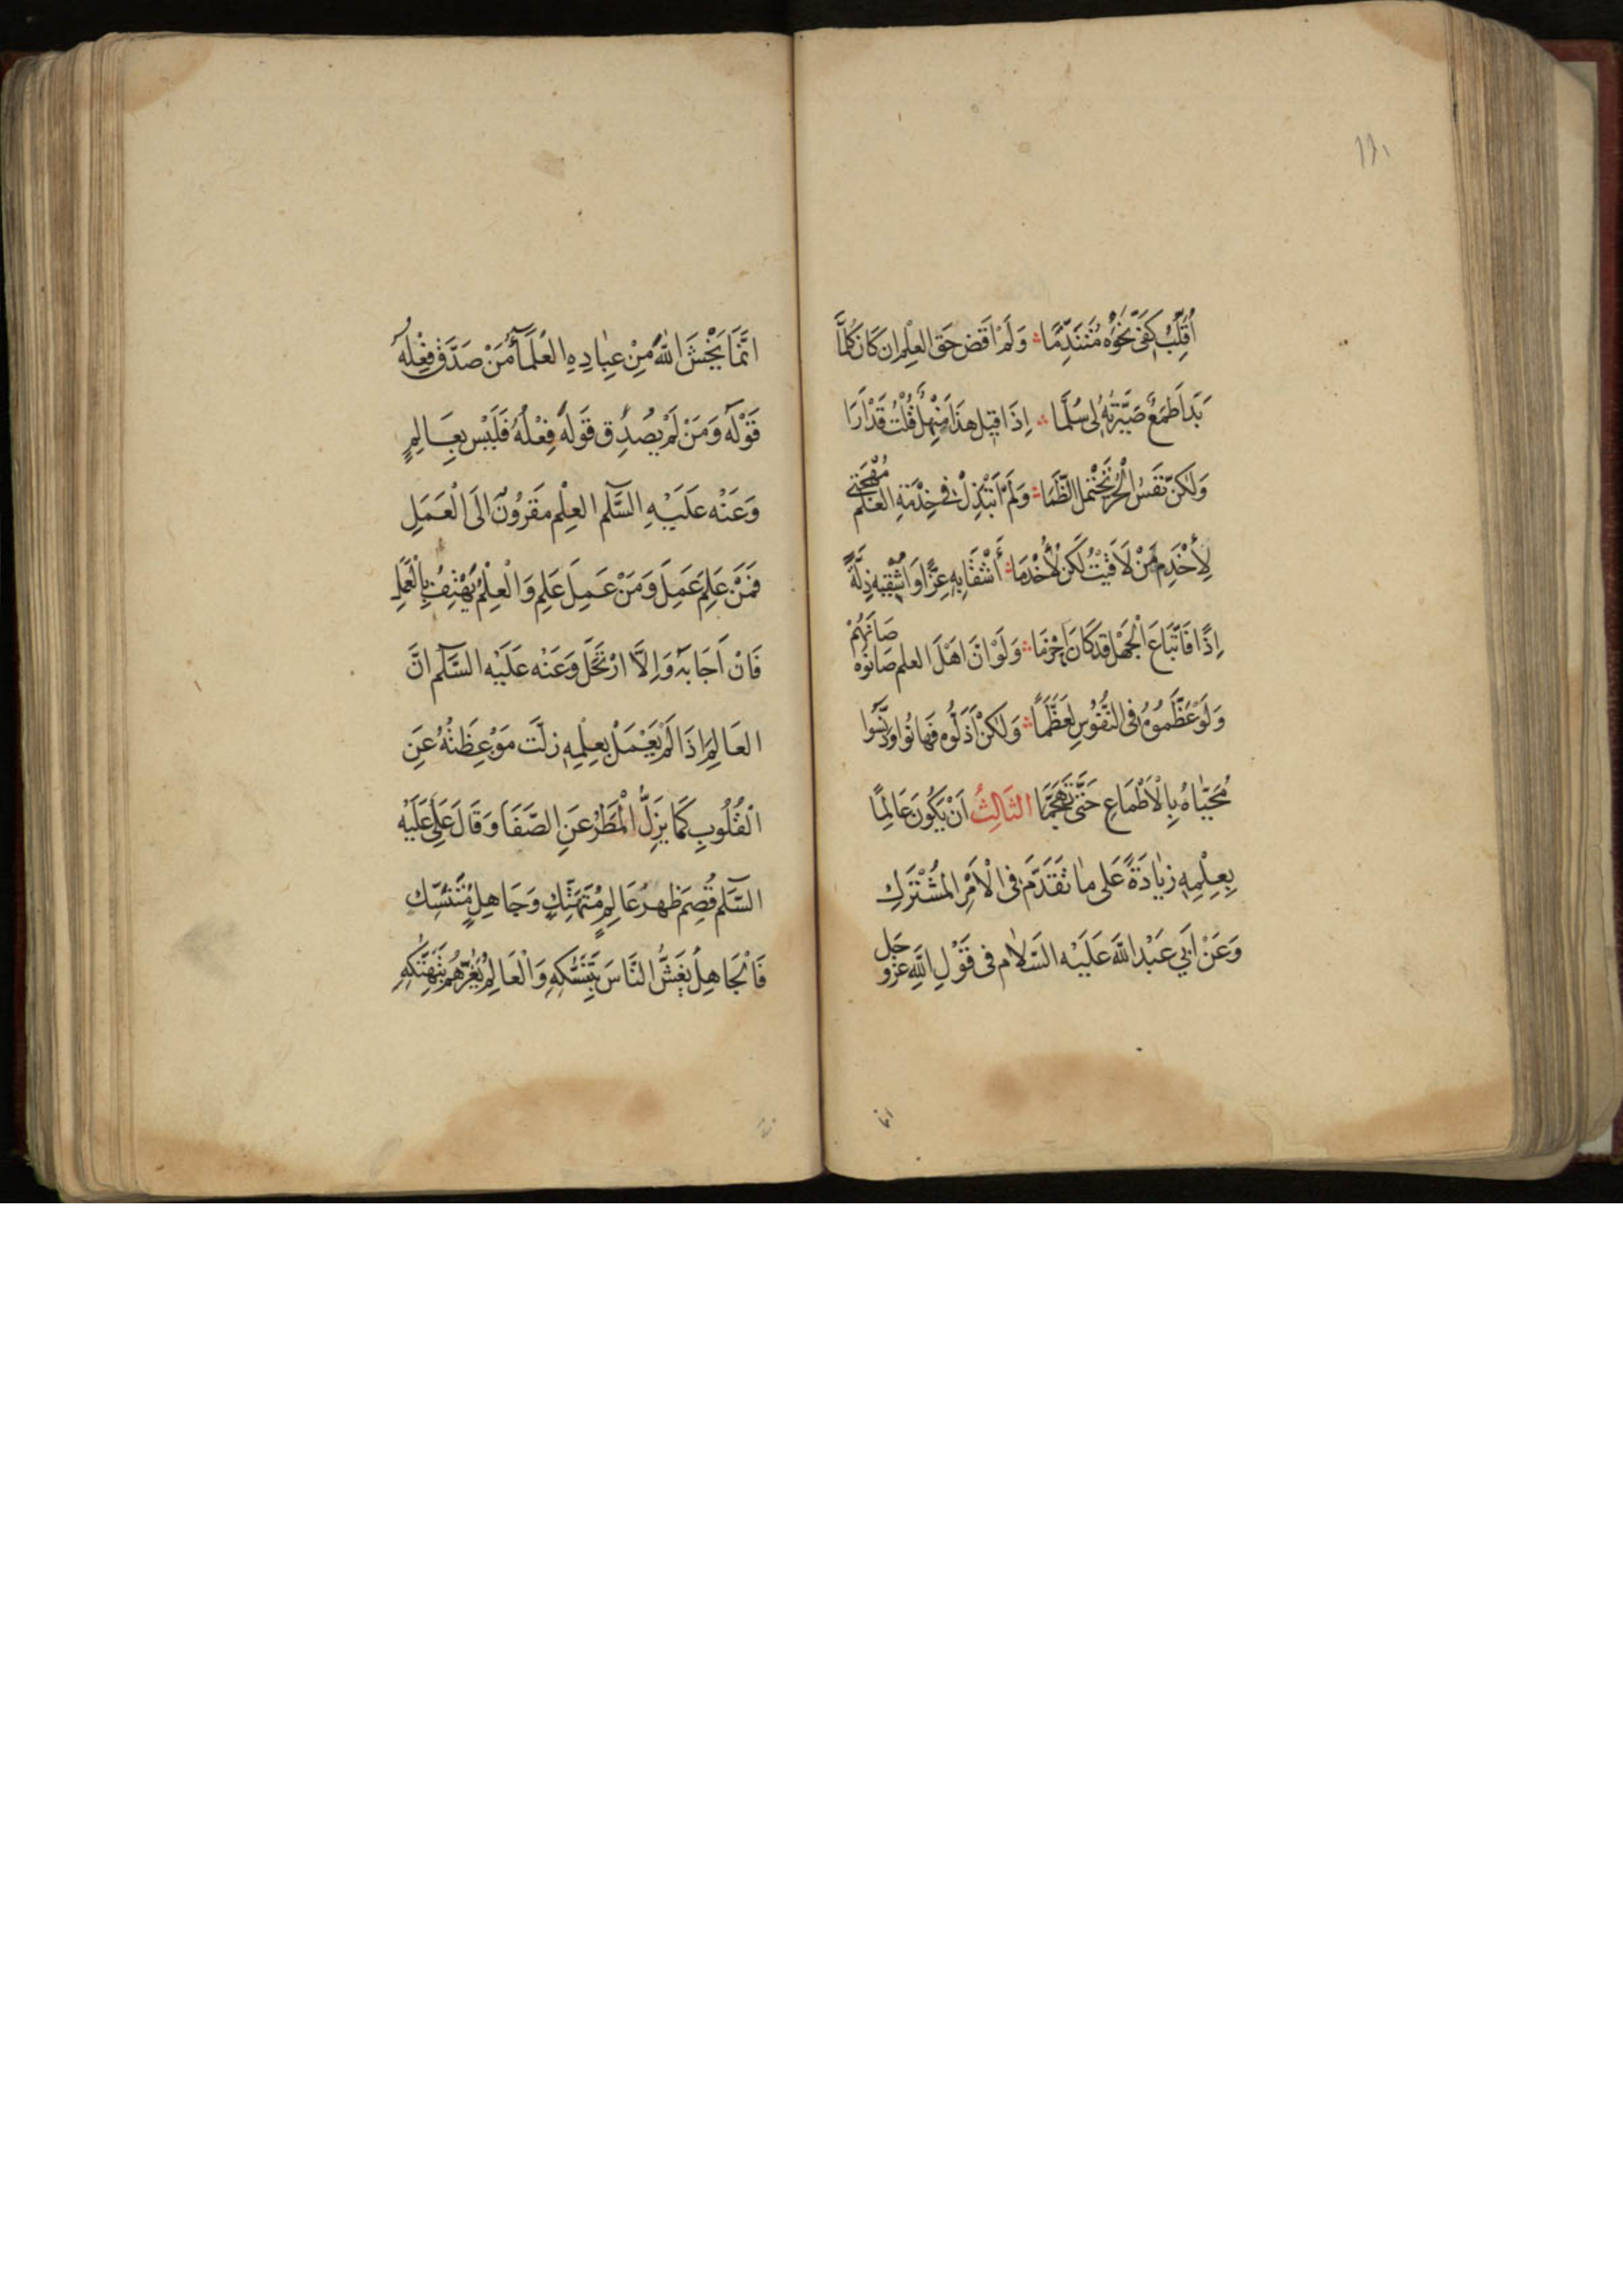 ١٣١
اُقَلِّبُ كَفّى نَحْوَهُ مُتَنَدِّمًا وَلَمْ اَقْضِ حَقَّ العِلْمِ اِن كَانَ كُلَّمَا
بَدَا طَمَعٌ صَيَّرْتُهُ لى سُلَّمَا اِذَا قيلَ هذَا مَنْهَلٌ قُلْتُ قَدْ اَرَا
وَلكِنَّ نَفْسَ الْحُرِّ تَحْتَمِلُ الظَّمَا وَلَمْ اَبْتَذِلْ فى خِدْمَةِ العِلْمِ مُهْجَتى
لِأَخْدِمَ مَنْ لَاقَيْتُ لكِنْ لِأُخْدَمَا أَأَشْقَا بِهِ عِزًّا وَاَسْقِيْهِ ذِلَّةً
اِذًا فَاتِّبَاعُ الْجَهْلِ قَدْ كَانَ اَحْزَمَا وَلَوْ اَنَّ اَهْلَ العِلْمِ صَانُوهُ صَانَهُمْ
وَلَوْ عَظَّمُوهُ فى النُّفُوسِ لَعَظَّمَا وَلكِنْ اَذَلُّوهُ فَهانُوا وَدَنَّسُوا
مُحَيّاهُ بِالْاَطْمَاعِ حَتّى تَجَهَّمَا الثَالِثُ اَنْ يَكُونَ عَالِمًا
بِعِلْمِهِ زِيادَةً عَلى ما تَقَدَّمَ فى الْاَمْرِ المُشْتَرَكِ
وَعَنْ اَبي عَبْدِ اللَّهِ عَلَيْهِ السَّلامُ فى قَوْلِ اللَّهِ عَزَّ وَجَل
انما
اِنَّمَا يَخْشَى اللهَ مِنْ عِبادِهِ العُلَمَآءُ مَنْ صَدَّقَ فِعْلُهُ
قَوْلَهُ وَمَنْ لَمْ يُصَدِّق قَوْلَهُ فِعْلُهُ فَلَيْسَ بِعَالِمٍ
وَعَنْه عَلَيْهِ السَّلم العِلْم مَقرُونٌ اِلَى الْعَمَلِ
فَمَنْ عَلِمَ عَمِلَ وَمَنْ عَمِلَ عَلِمَ وَالْعِلْمُ يَهْتِفُ بِالْعَمَلِ
فَاِنْ اَجَابَهُ وَاِلَّا ارْتَحَلَ وَعَنْه عَلَيْه السَّلم اِنَّ
العَالِمَ اِذَا لَمْ يَعْمَلْ بِعِلْمِهِ زلَّت مَوْعِظَتُهُ عَنِ
الْقُلُوبِ كَمَا يَزِلُّ الْمَطَرُ عَنِ الصَّفَا وَقَالَ عَلِىٌّ عَلَيْه
السَّلم قُصِمَ ظهرى عَالِمٌ مُتَهَتِّكٌ وَجَاهِلٌ مُتَنَسِّكٌ
فَالْجَاهِلُ يَغُشُّ النَّاسَ بِتَنَسُّكِهِ وَالْعَالِمُ يَغُرُّهُمْ بِتَهَتُّكِهِ